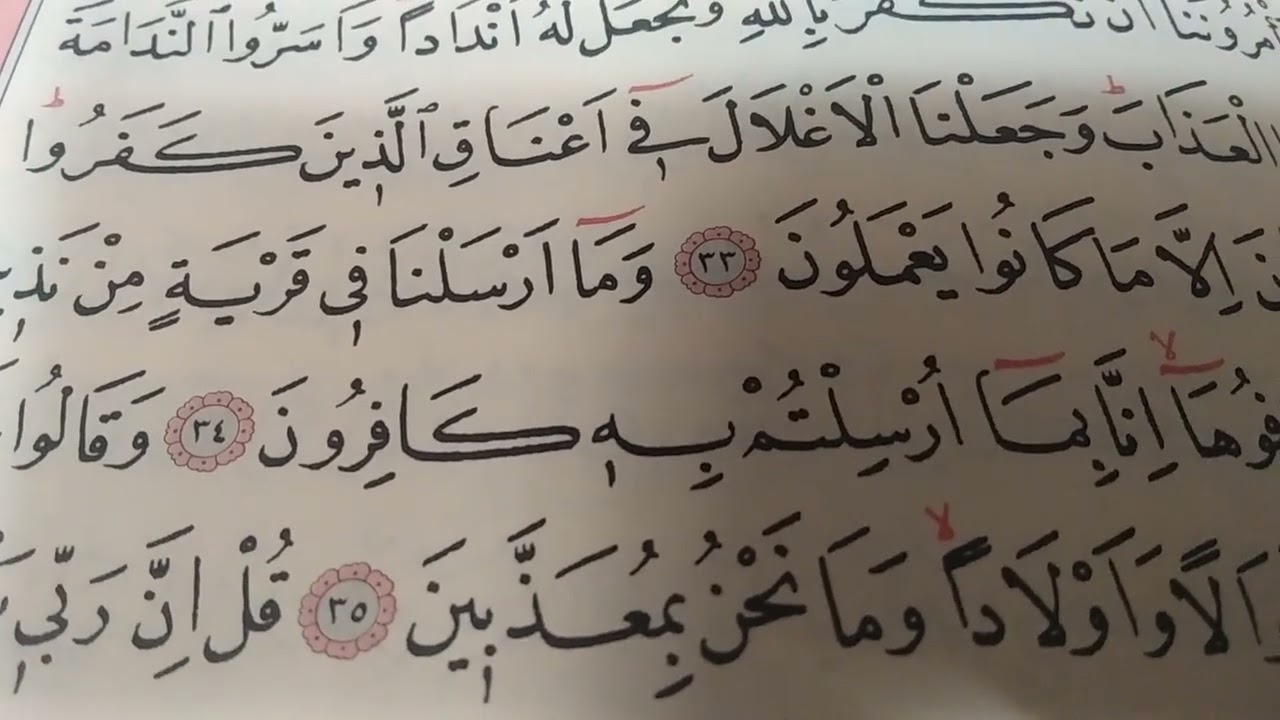 اَنْ نَكْفُرَ بِاللّٰهِ وَنَجْعَلَ لَهُٓ اَنْدَادًا وَاَسَرُّوا النَّدَامَةَ
الْعَذَابَۜ وَجَعَلْنَا الْاَغْلَالَ ف۪ٓي اَعْنَاقِ الَّذ۪ينَ كَفَرُواۜ
اِلَّا مَا كَانُوا يَعْمَلُونَ ٣٣ وَمَٓا اَرْسَلْنَا ف۪ي قَرْيَةٍ مِنْ
اِنَّا بِمَٓا اُرْسِلْتُمْ بِه۪ كَافِرُونَ ٣٤ وَقَالُوا
وَاَوْلَادًاۙ وَمَا نَحْنُ بِمُعَذَّب۪ينَ ٣٥ قُلْ اِنَّ رَبّ۪ي